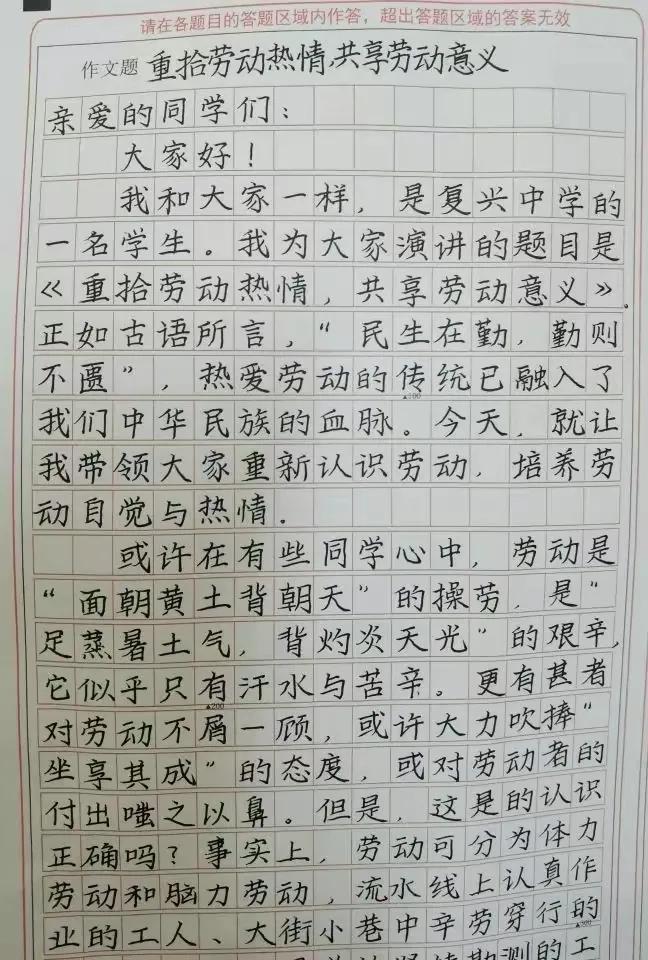 请在各题目的答题区域内作答，超出答题区域的答案无效
作文题 重拾劳动热情，共享劳动意义
亲爱的同学们：
大家好！
我和大家一样，是复兴中学的
一名学生。我为大家演讲的题目是
《重拾劳动热情，共享劳动意义》。
正如古语所言，“民生在勤，勤则
不匮”，热爱劳动的传统已融入了
▲100
我们中华民族的血脉。今天，就让
我带领大家重新认识劳动，培养劳
动自觉与热情。
或许在有些同学心中，劳动是
“面朝黄土背朝天”的操劳，是“
足蒸暑土气，背灼炎天光”的艰辛，
它似乎只有汗水与苦辛。更有甚者
▲200
对劳动不屑一顾，或许大力吹捧“
坐享其成”的态度，或对劳动者的
付出嗤之以鼻。但是，这是的认识
正确吗？事实上，劳动可分为体力
劳动和脑力劳动，流水线上认真作
业的工人、大街小巷中辛劳穿行的
▲300
勘测的工